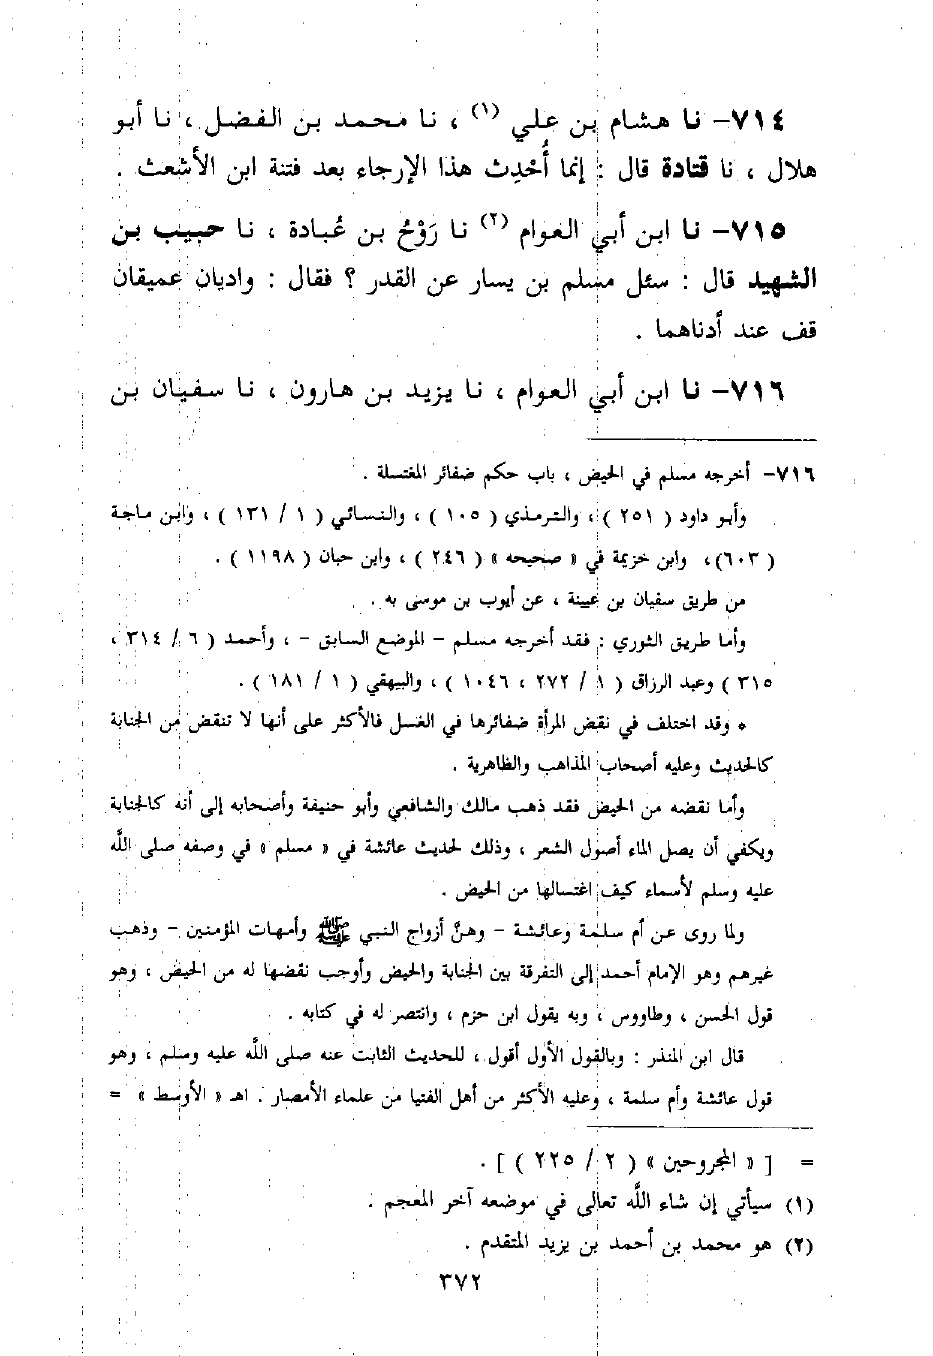 ٧١٤- نا هشام بن علي (١) ، نا محمد بن الفضل ، نا أبو
هلال ، نا قتادة قال : إنما أُحْدِث هذا الإرجاء بعد فتنة ابن الأشعث .
٧١٥- نا ابن أبي العوام (٢) نا رَوْحُ بن عُبادة ، نا حبيب بن
الشهيد قال : سئل مسلم بن يسار عن القدر ؟ فقال : واديان عميقان
قف عند أدناهما .
٧١٦- نا ابن أبي العوام ، نا يزيد بن هارون ، نا سفيان بن
٧١٦- أخرجه مسلم في الحيض ، باب حكم ضفائر المغتسلة .
وأبو داود ( ٢٥١ ) ، والترمذي ( ١٠٥ ) ، والنسائي ( ١ / ١٣١ ) ، وابن ماجة
( ٦٠٣) ، وابن خزيمة في « صحيحه » ( ٢٤٦ ) ، وابن حبان ( ١١٩٨ ) .
من طريق سفيان بن عيينة ، عن أيوب بن موسى به .
وأما طريق الثوري : فقد أخرجه مسلم - الموضع السابق - ، وأحمد ( ٦ / ٣١٤ ،
٣١٥ ) وعبد الرزاق ( ١ / ٢٧٢ ، ١٠٤٦ ) ، والبيهقي ( ١ / ١٨١ ) .
* وقد اختلف في نقض المرأة ضفائرها في الغسل فالأكثر على أنها لا تنقض من الجنابة
كالحديث وعليه أصحاب المذاهب والظاهرية .
وأما نقضه من الحيض فقد ذهب مالك والشافعي وأبو حنيفة وأصحابه إلى أنه كالجنابة
ويكفي أن يصل الماء أصول الشعر ، وذلك لحديث عائشة في « مسلم » في وصفه صلى اللَّه
عليه وسلم لأسماء كيف اغتسالها من الحيض .
ولما روى عن أم سلمة وعائشة - وهنَّ أزواج النبي ﷺ وأمهات المؤمنين - وذهب
غيرهم وهو الإمام أحمد إلى التفرقة بين الجنابة والحيض وأوجب نقضها له من الحيض ، وهو
قول الحسن ، وطاووس ، وبه يقول ابن حزم ، وانتصر له في كتابه .
قال ابن المنذر : وبالقول الأول أقول ، للحديث الثابت عنه صلى اللَّه عليه وسلم ، وهو
قول عائشة وأم سلمة ، وعليه الأكثر من أهل الفتيا من علماء الأمصار . اهـ « الأوسط » =
= [ « المجروحين » ( ٢ / ٢٢٥ ) ] .
(١) سيأتي إن شاء اللَّه تعالى في موضعه آخر المعجم .
(٢) هو محمد بن أحمد بن يزيد المتقدم .
٣٧٢